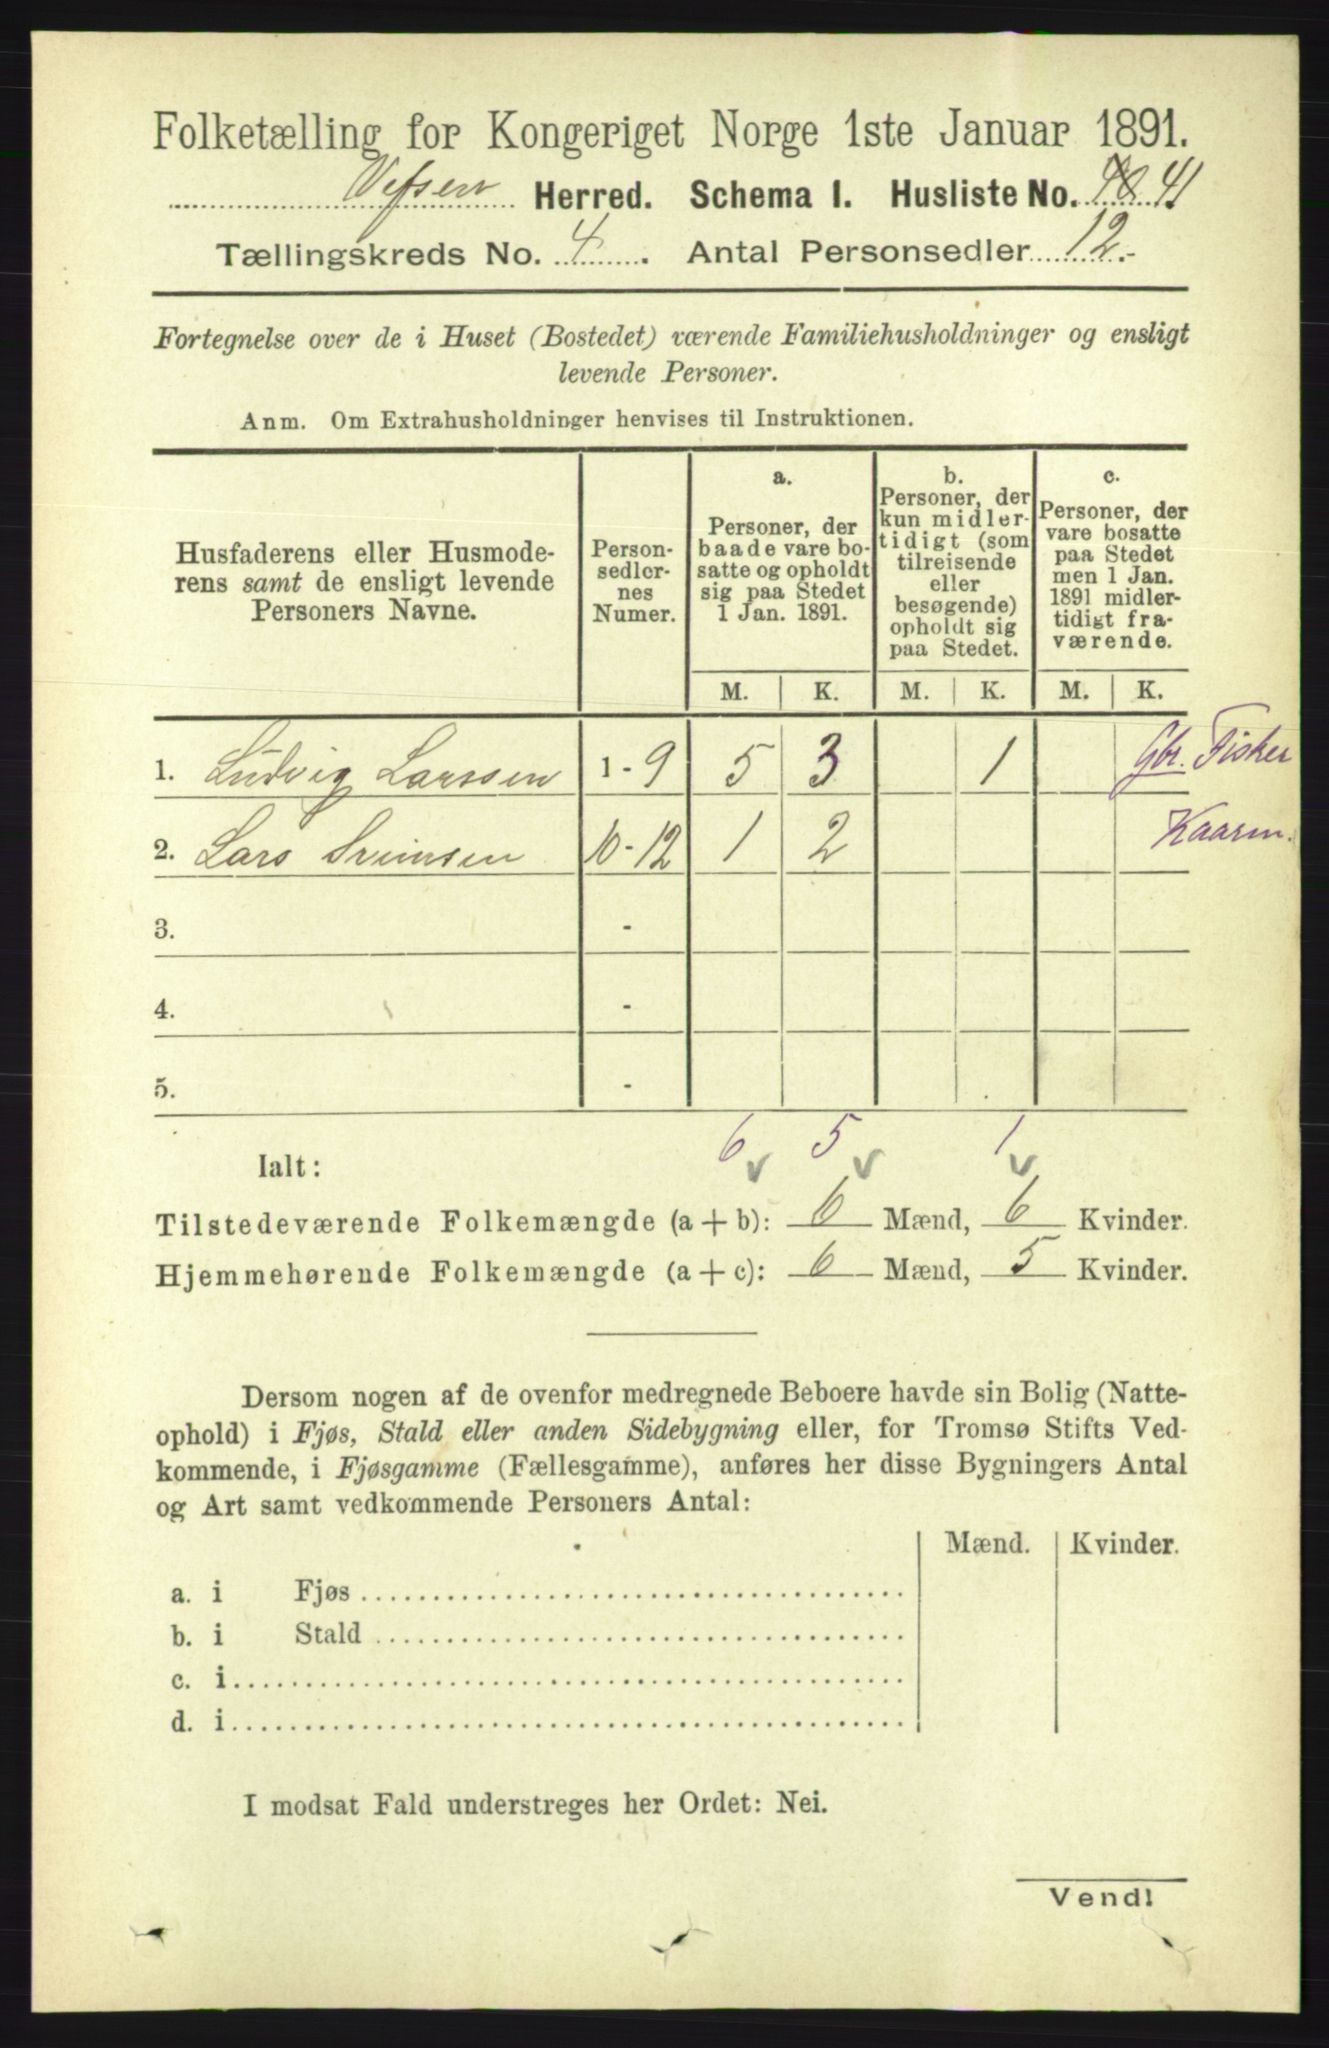 Folketælling for Kongeriget Norge 1ste Januar 1891.
Vefsen Herred. Schema I. Husliste No. 40 41
Tællingskreds No. 4. Antal Personsedler 12.
Fortegnelse over de i Huset (Bostedet) værende Familiehusholdninger og ensligt
levende Personer.
Anm. Om Extrahusholdninger henvises til Instruktionen.
Husfaderens eller Husmode-
rens samt de ensligt levende
Personers Navne.
Person-
sedler-
nes
Numer.
a.
Personer, der
baade vare bo-
satte og opholdt
sig paa Stedet
1 Jan. 1891.
b.
Personer, der
kun midler-
tidigt (som
tilreisende
eller
besøgende)
opholdt sig
paa Stedet.
c.
Personer, der
vare bosatte
paa Stedet
men 1 Jan.
1891 midler-
tidigt fra-
værende.
M. K. M. K. M. K.
1. Ludvig Larssen 1 - 9 5 3 1 Gbr. Fisker
2. Lars 10 - 12 1 2 Kaarm.
3. -
4. -
5. -
6 5 1
Ialt: v v v
Tilstedeværende Folkemængde (a + b): 6 Mænd, 6 Kvinder.
Hjemmehørende Folkemængde (a + c): 6 Mænd, 5 Kvinder.
Dersom nogen af de ovenfor medregnede Beboere havde sin Bolig (Natte-
ophold) i Fjøs, Stald eller anden Sidebygning eller, for Tromsø Stifts Ved-
kommende, i Fjøsgamme (Fællesgamme), anføres her disse Bygningers Antal
og Art samt vedkommende Personers Antal:
Mænd. Kvinder.
a. i Fjøs
b. i Stald
c. i
d. i
I modsat Fald understreges her Ordet: Nei.
Vend!